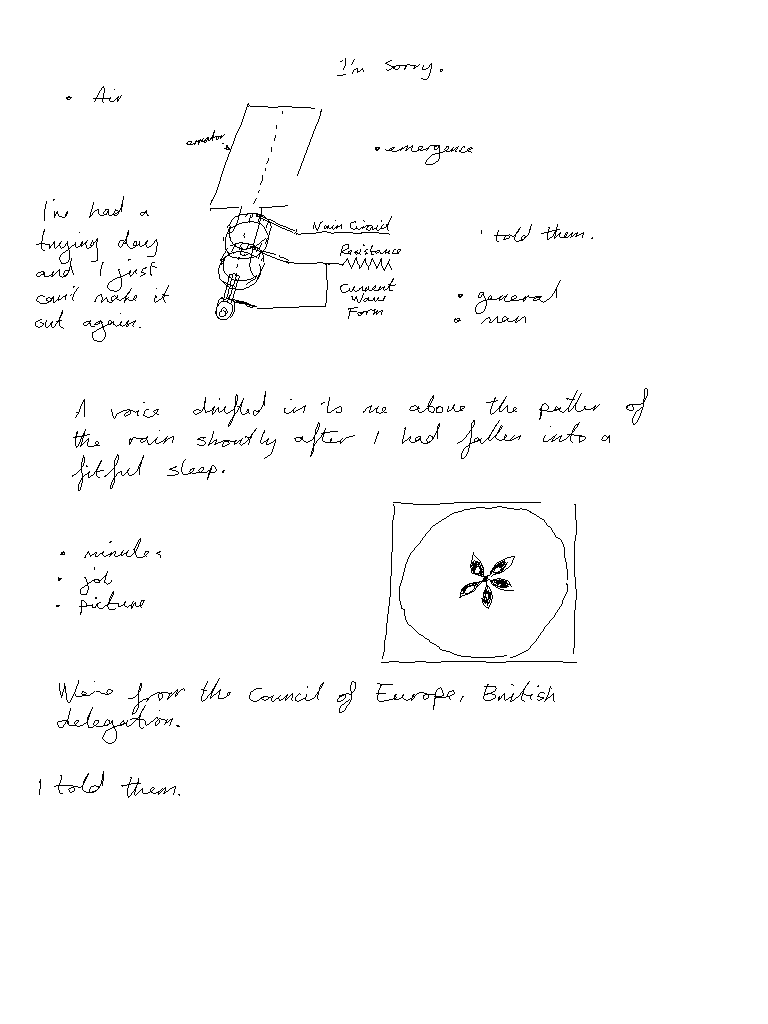 I'm sorry.
• Air
• emergence
I've had a
trying day
and I just
can't make it
out again.
Main Circuit
Resistance
Current
Wave
Form
I told them.
• general
• man
A voice drifted in to me above the patter of
the rain shortly after I had fallen into a
fitful sleep.
• minutes
• job
• picture
We're from the Council of Europe, British
delegation.
I told them.